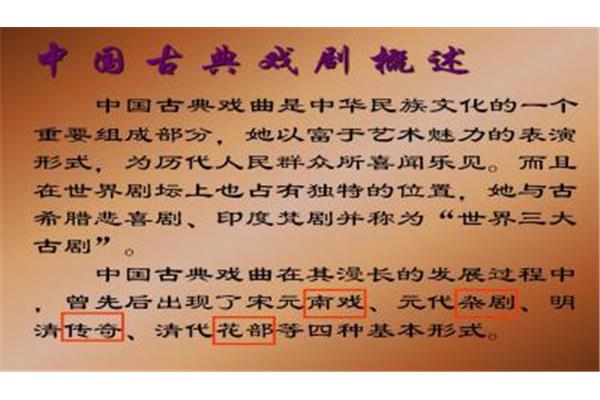 中国古典戏剧概述
中国古典戏曲是中华民族文化的一个
重要组成部分，她以富于艺术魅力的表演
形式，为历代人民群众所喜闻乐见。而且
在世界剧坛上也占有独特的位置，她与古
希腊悲喜剧、印度梵剧并称为“世界三大
古剧”。
中国古典戏曲在其漫长的发展过程中
，曾先后出现了宋元南戏、元代杂剧、明
清传奇、清代花部等四种基本形式。